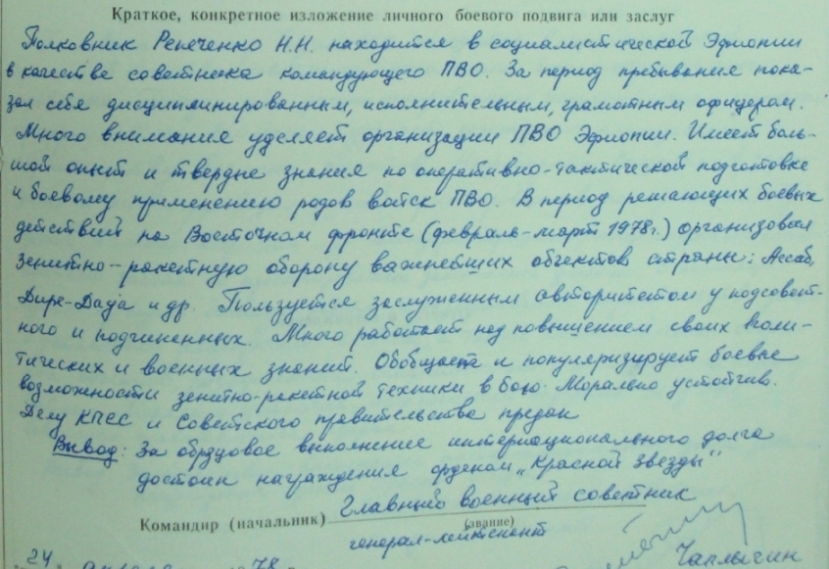 Краткое, конкретное изложение личного боевого подвига или заслуг
Полковник Репеченко Н.Н. находится в социалистической Эфиопии
в качестве советника командующего ПВО. За период пребывания пока-
зал себя дисциплинированным, исполнительным, грамотным офицером.
Много внимания уделяет организации ПВО Эфиопии. Имеет боль-
шой опыт и твердые знания по оперативно-тактической подготовке
и боевому применению родов войск ПВО. В период решающих боевых
действий на Восточном фронте (февраль-март 1978г.) организовал
зенитно-ракетную оборону важнейших объектов страны: Ассаб,
Дире-Дауа и др. Пользуется заслуженным авторитетом у подсовет-
ного и подчиненных. Много работает над повышением своих поли-
тических и военных знаний. Обобщает и популяризирует боевые
возможности зенитно-ракетной техники в бою. Морально устойчив.
Делу КПСС и Советского правительства предан
Вывод: За обрзцовое выполнение интернационального долга
достоин награждения орденом „Красной Звезды"
Командир (начальник) Главный военный советник
(звание)
генерал-лейтенант
Чаплыгин
24 апреля 1978